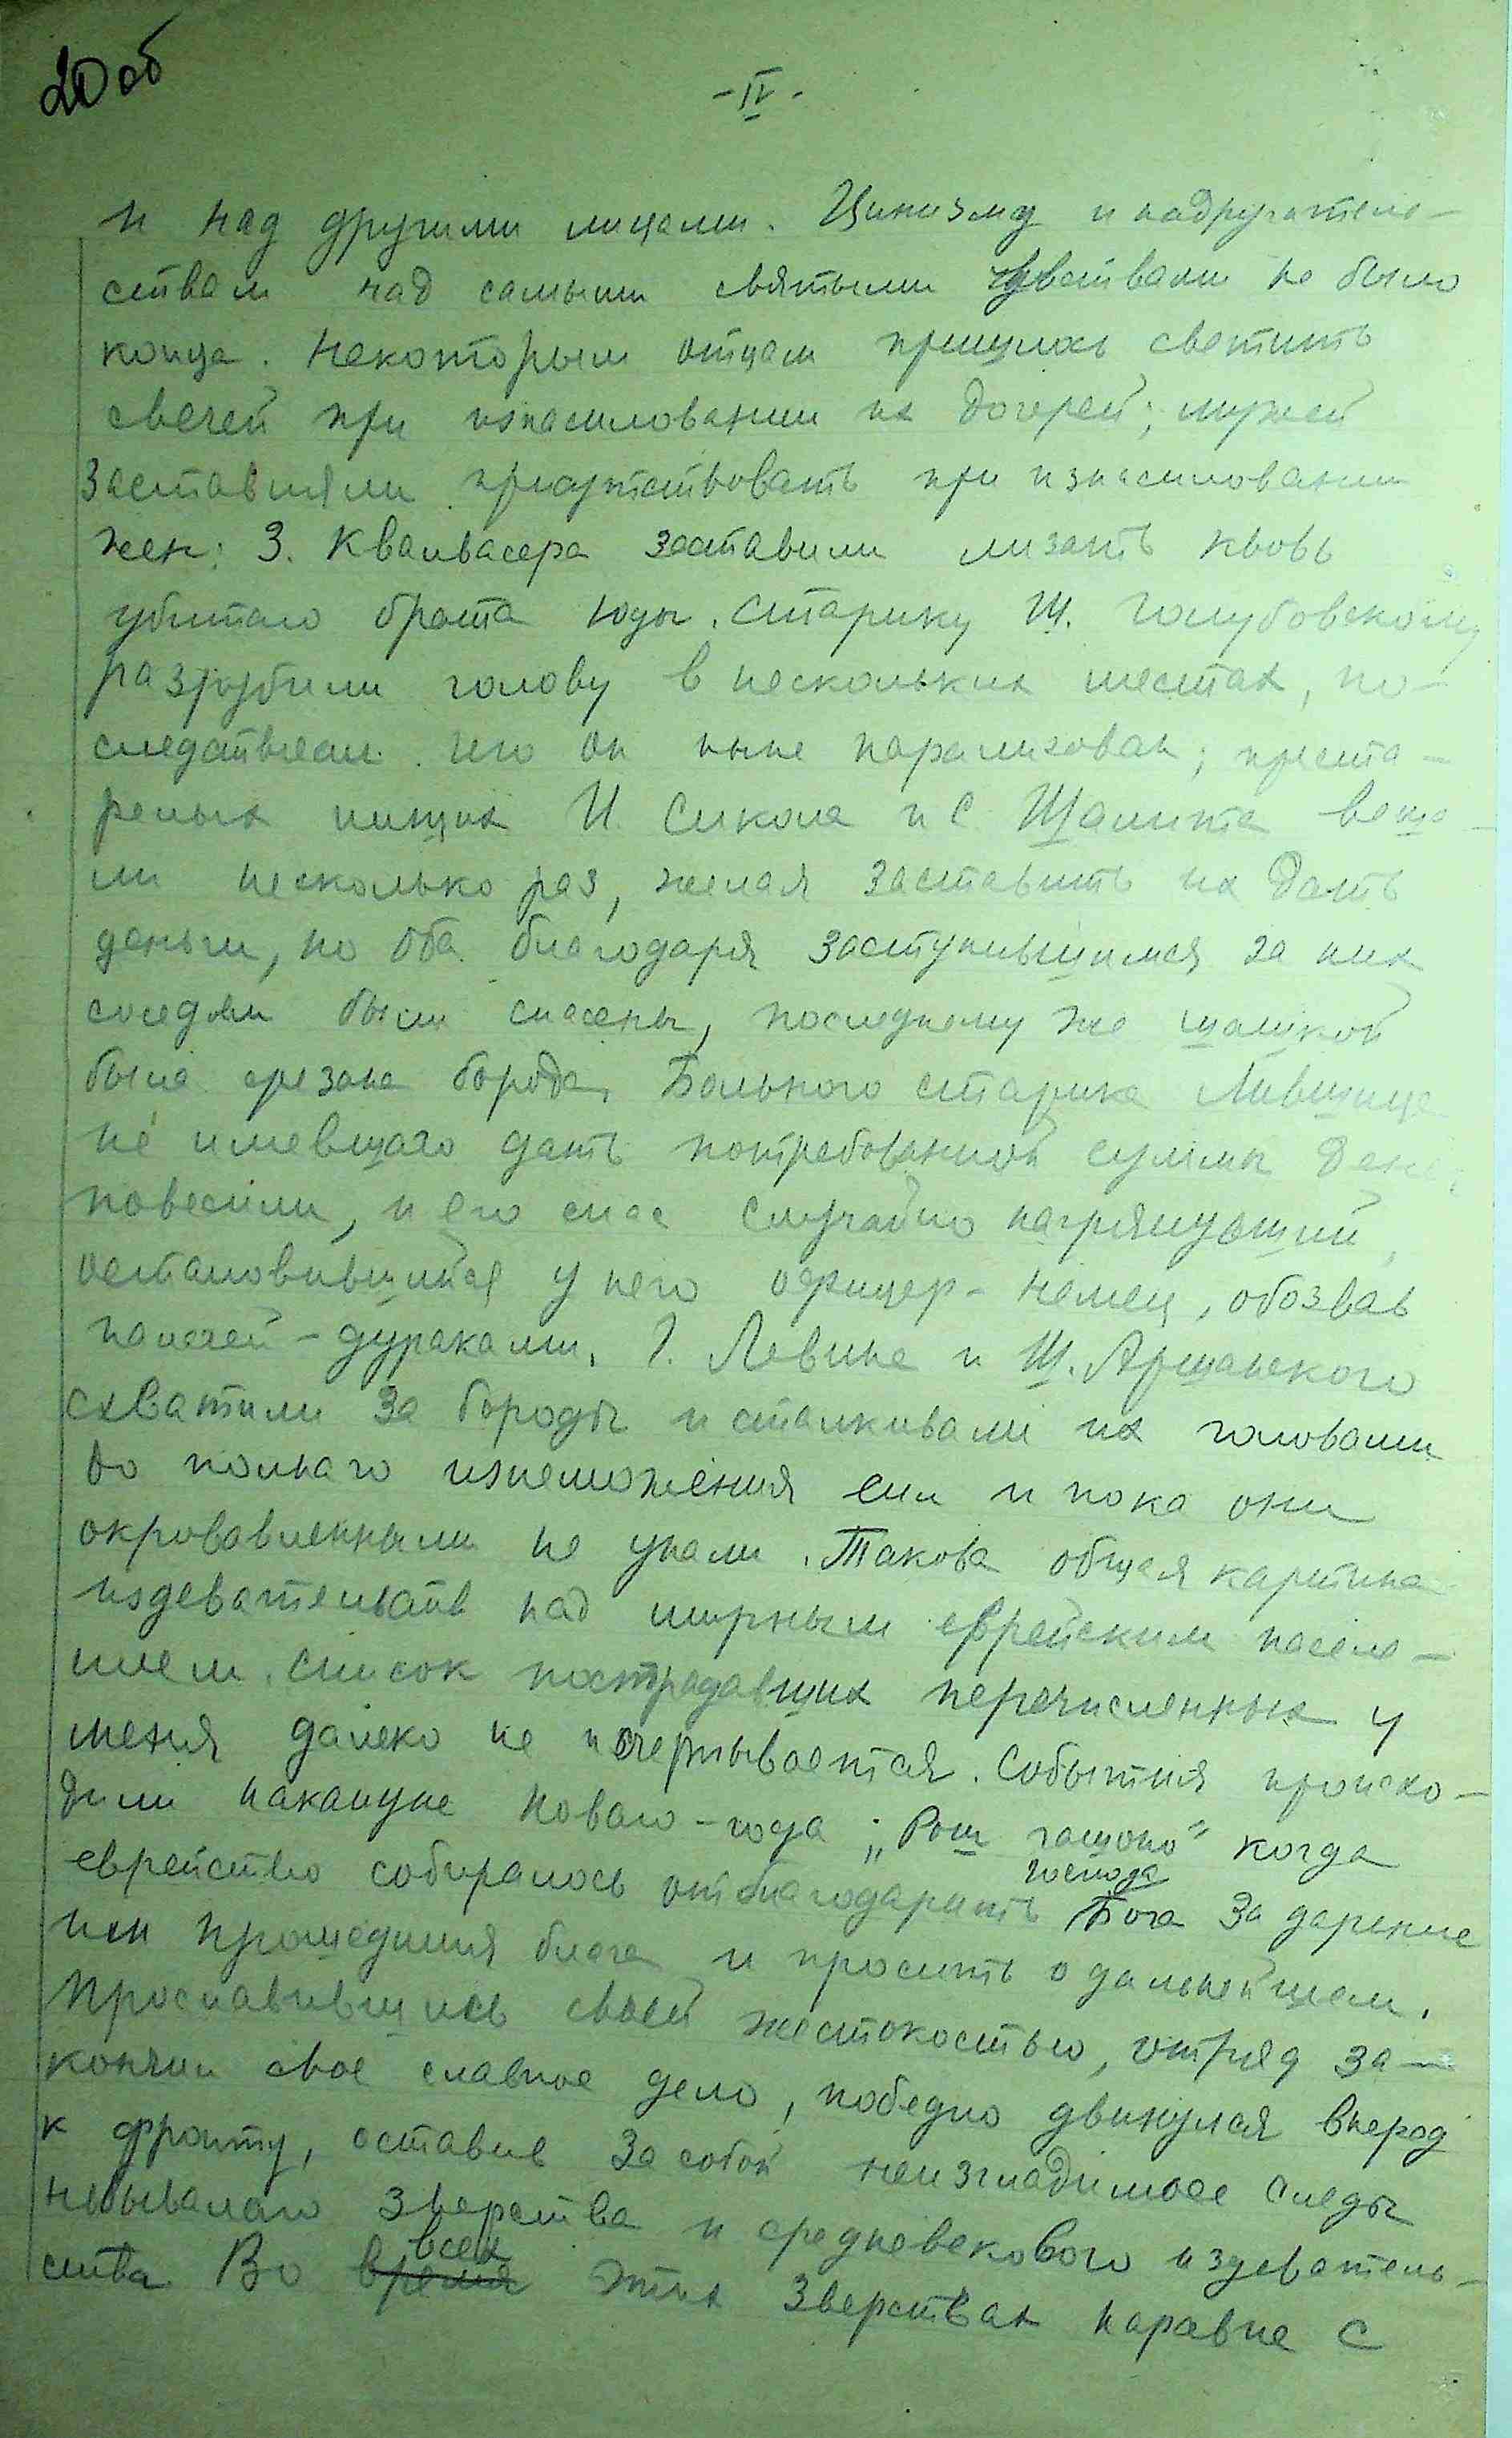 20 об
- IV -
и над другими лицами. Цинизму и надругатель-
ствам над самыми святыми чувствами не было
конца. Некоторым отцам пришлось светить
свечей при изнасиловании их дочерей; мужей
заставляли присутствовать при изнасиловании
жен; З. Квапвасера заставили лизать кровь
убитаго брата Юды. Старику Ш. Голубовскому
разрубили голову в нескольких местах, по-
следствием чего он ныне парализован; преста-
релых нищих И. Сикола и С. Шалита веша-
ли несколько раз, желая заставить их дать
деньги, но оба благодаря заступившимся за них
соседям были спасены, последнему же шашкой
была срезана борода. Больного старика Лившица
не имевшаго дать потребованной суммы денег
повесили, и его спас случайно нагрянувший,
остановившийся у него офицер-немец, обозвав
палачей-дураками. Г. Левина и Ш. Аршанского
схватили за бороды и сталкивали их головами
до полнаго изнеможения сил и пока они
окровавленными не упали. Такова общая картина
издевательств над мирным еврейским населе-
нием. Список пострадавших перечисленных у
меня далеко не исчерпывается. События происхо-
дили накануне Новаго-года „Рош гашоно" когда
еврейство собиралось отблагодарить господа Бога за дарение
им прошедшия блага и просить о дальнейшем.
Прославившись своей жестокостью, отряд за-
кончил свое славное дело, победно двинулся вперед
к фронту, оставив за собой неизгладимое следы
небывалаго зверства и средневекового издеватель-
ства Во время всех этих зверствах наравне с